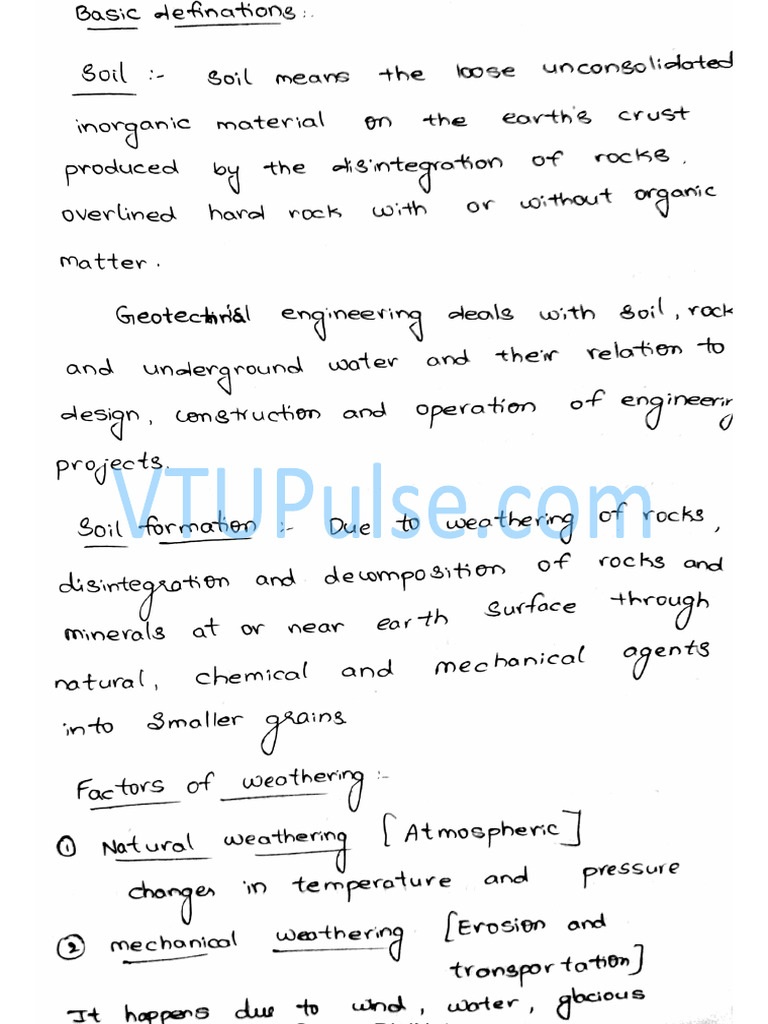 Basic definations:.
Soil :- Soil means the loose unconsolidated
inorganic material on the earth's crust
produced by the disintegration of rocks.
overlined hard rock with or without organic
matter.
engineering deals with soil, rock
and underground water and their relation to
design, construction and operation of engineerin
projects.
VTUPulse.com
Soil formation :- Due to weathering of rocks,
disintegration and decomposition of rocks and
minerals at or near earth surface through
natural, chemical and mechanical agents
into smaller grains
Factors of weathering :-
① Natural weathering [Atmospheric]
changes in temperature and pressure
② mechanical weathering [Erosion and
transportation]
It happens due to wind, water, glacious